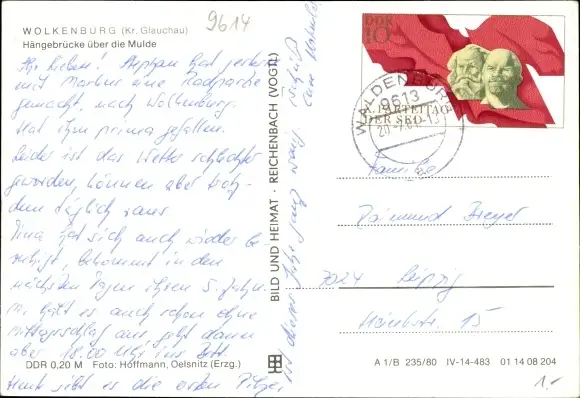 WOLKENBURG (Kr. Glauchau)
Hängebrücke über die Mulde
9614
Ihr Lieben! Stephan hat gestern
mit Markus eine Radpartie
gemacht, nach Wolkenburg.
Hat ihm prima gefallen.
Leider ist das Wetter schlechter
geworden, können aber trotz-
dem täglich raus
Tina hat sich auch wieder be-
ruhigt, bekommt in den
nächsten Tagen ihren 5. Zahn.
M. hält es auch schon ohne
Mittagsschlaf aus, geht dann
aber 18.00 Uhr ins Bett.
Heut gibt es die ersten Pilze,
ganz
DDR 0,20 M Foto: Hoffmann, Oelsnitz (Erzg.)
BILD UND HEIMAT · REICHENBACH (VOGTL)
DDR
10
X. PARTEITAG
DER SED
WALDENBURG
9613
Familie
Raimund Breyer
7024 Leipzig
15
A 1/B 235/80 IV-14-483 01 14 08 204
1.-